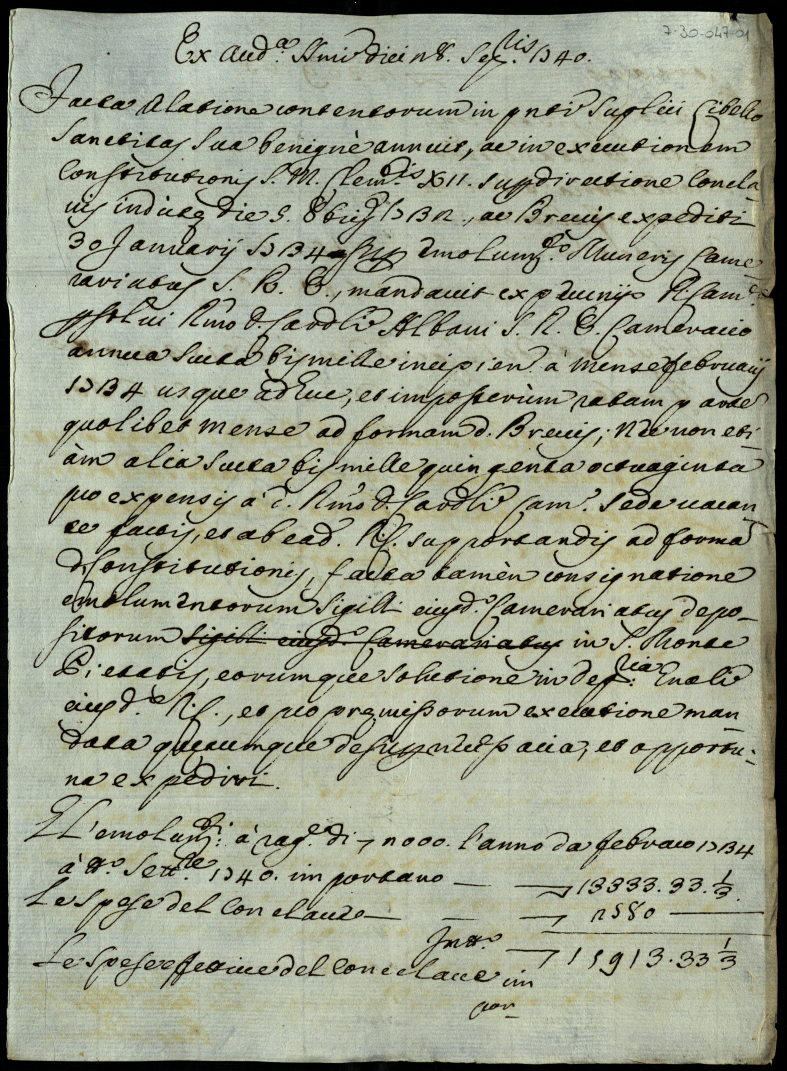 7-30-047-01
Ex Aud.a SSmi diei 28. Septris 1740.
Facta relatione contentorum in pnti supplici libello
Sanctitas Sua benignè annuit, ac in executionem
Constitutionis S. M. Clemtis XII. super directione Concla-
vis indictae die 5. 8bris 1732, ac Brevis expediti
30 Januarij 1734 super emolumto Muneris Came-
rariatus S. R. E., mandavit ex pecunijs R. Cam.ae
psolvi Rmo d. Cardli Albani S. R. E. Camerario
annua scuta bismille incipien. à mense februarij
1734 usque adhuc, et imposterùm ratam partem
quolibet mense ad formam d. Brevis; Nec non eti-
àm alia scuta bismille quingenta octuaginta
pro expensis à d. Rmo d. Cardli Cam.o Sede vacan-
te factis, et ab ead. R.C. supportandis ad formā
d. Constitutionis, facta tamèn consignatione
emolumentorum Sigilli eiusd. Camerariatus depo-
sitorum sigilli eiusd. Camerariatus in S. Monte
Pietatis, eorumque solutione in
eiusd. R.C., et pro premissorum executione man
data quaecumque desuper necessaria, et opportu-
na expediri.
L'emolumti à rag.e di 2000. l'anno da febraro 1734
à tt.o Settbre 1740. importano — 13333.33.1/3
Le spese del Conclave — — 2580 —
In tt.o 15913.33 1/3
Le spese fattive del Conclave im
por-